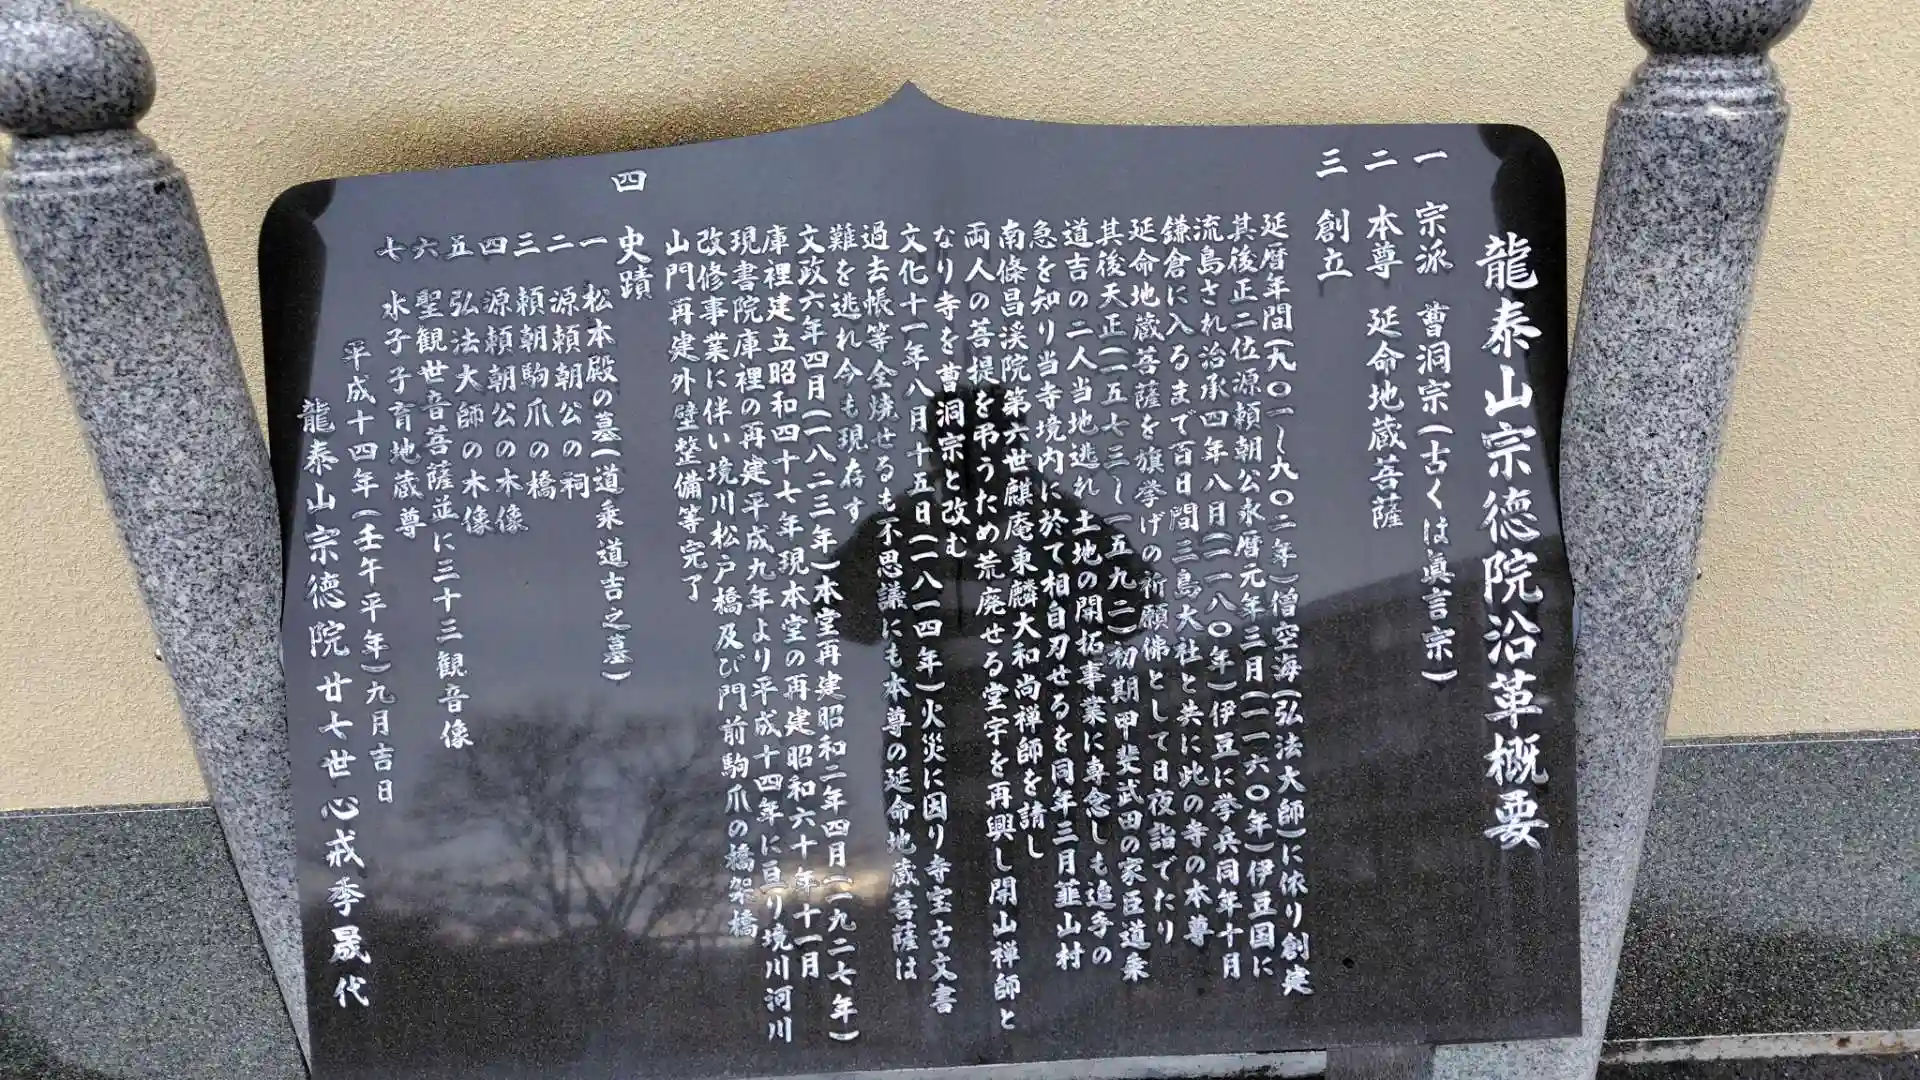 龍泰山宗徳院沿革概要
一 宗派 曹洞宗(古くは眞言宗)
二 本尊 延命地蔵菩薩
三 創立
延暦年間(九〇一〜九〇二年)僧空海(弘法大師)に依り創建
其後正二位源頼朝公永暦元年三月(一一六〇年)伊豆国に
流島され治承四年八月(一一八〇年)伊豆に挙兵同年十月
鎌倉に入るまで百日間三島大社と共に此の寺の本尊
延命地蔵菩薩を旗挙げの祈願佛として日夜詣でたり
其後天正(一五七三〜一五九二)初期甲斐武田の家臣道乗
道吉の二人当地逃れ土地の開拓事業に専念しも追手の
急を知り当寺境内に於て相自刃せるを同年三月韮山村
南條昌溪院第六世麒庵東麟大和尚禅師を請し
両人の菩提を弔うため荒廃せる堂宇を再興し開山禅師と
なり寺を曹洞宗と改む
文化十一年八月十五日(一八一四年)火災に因り寺宝古文書
過去帳等全焼せるも不思議にも本尊の延命地蔵菩薩は
難を逃れ今も現存す
文政六年四月(一八二三年)本堂再建昭和二年四月(一九二七年)
庫裡建立昭和四十七年現本堂の再建昭和六十年十一月
現書院庫裡の再建平成九年より平成十四年に亘り境川河川
改修事業に伴い境川松戸橋及び門前駒爪の橋架橋
山門再建外壁整備等完了
四 史蹟
一 松本殿の墓(道乗道吉之墓)
二 源頼朝公の祠
三 頼朝駒爪の橋
四 源頼朝公の木像
五 弘法大師の木像
六 聖観世音菩薩並に三十三観音像
七 水子子育地蔵尊
平成十四年(壬午平年)九月吉日
龍泰山宗徳院廿七世心戒季晟代